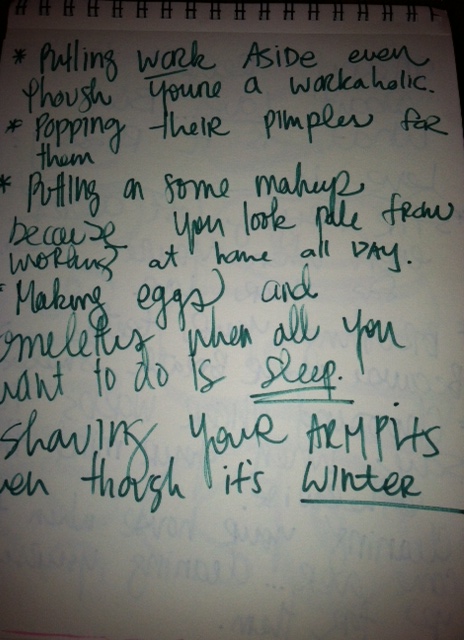 * Putting work ASIDE even
though you're a workaholic.
* Popping their pimples for
them
* Putting on some makeup
because you look pale from
working at home all DAY.
* Making eggs and
omelettes when all you
want to do is sleep.
shaving your ARMPITS
even though it's WINTER